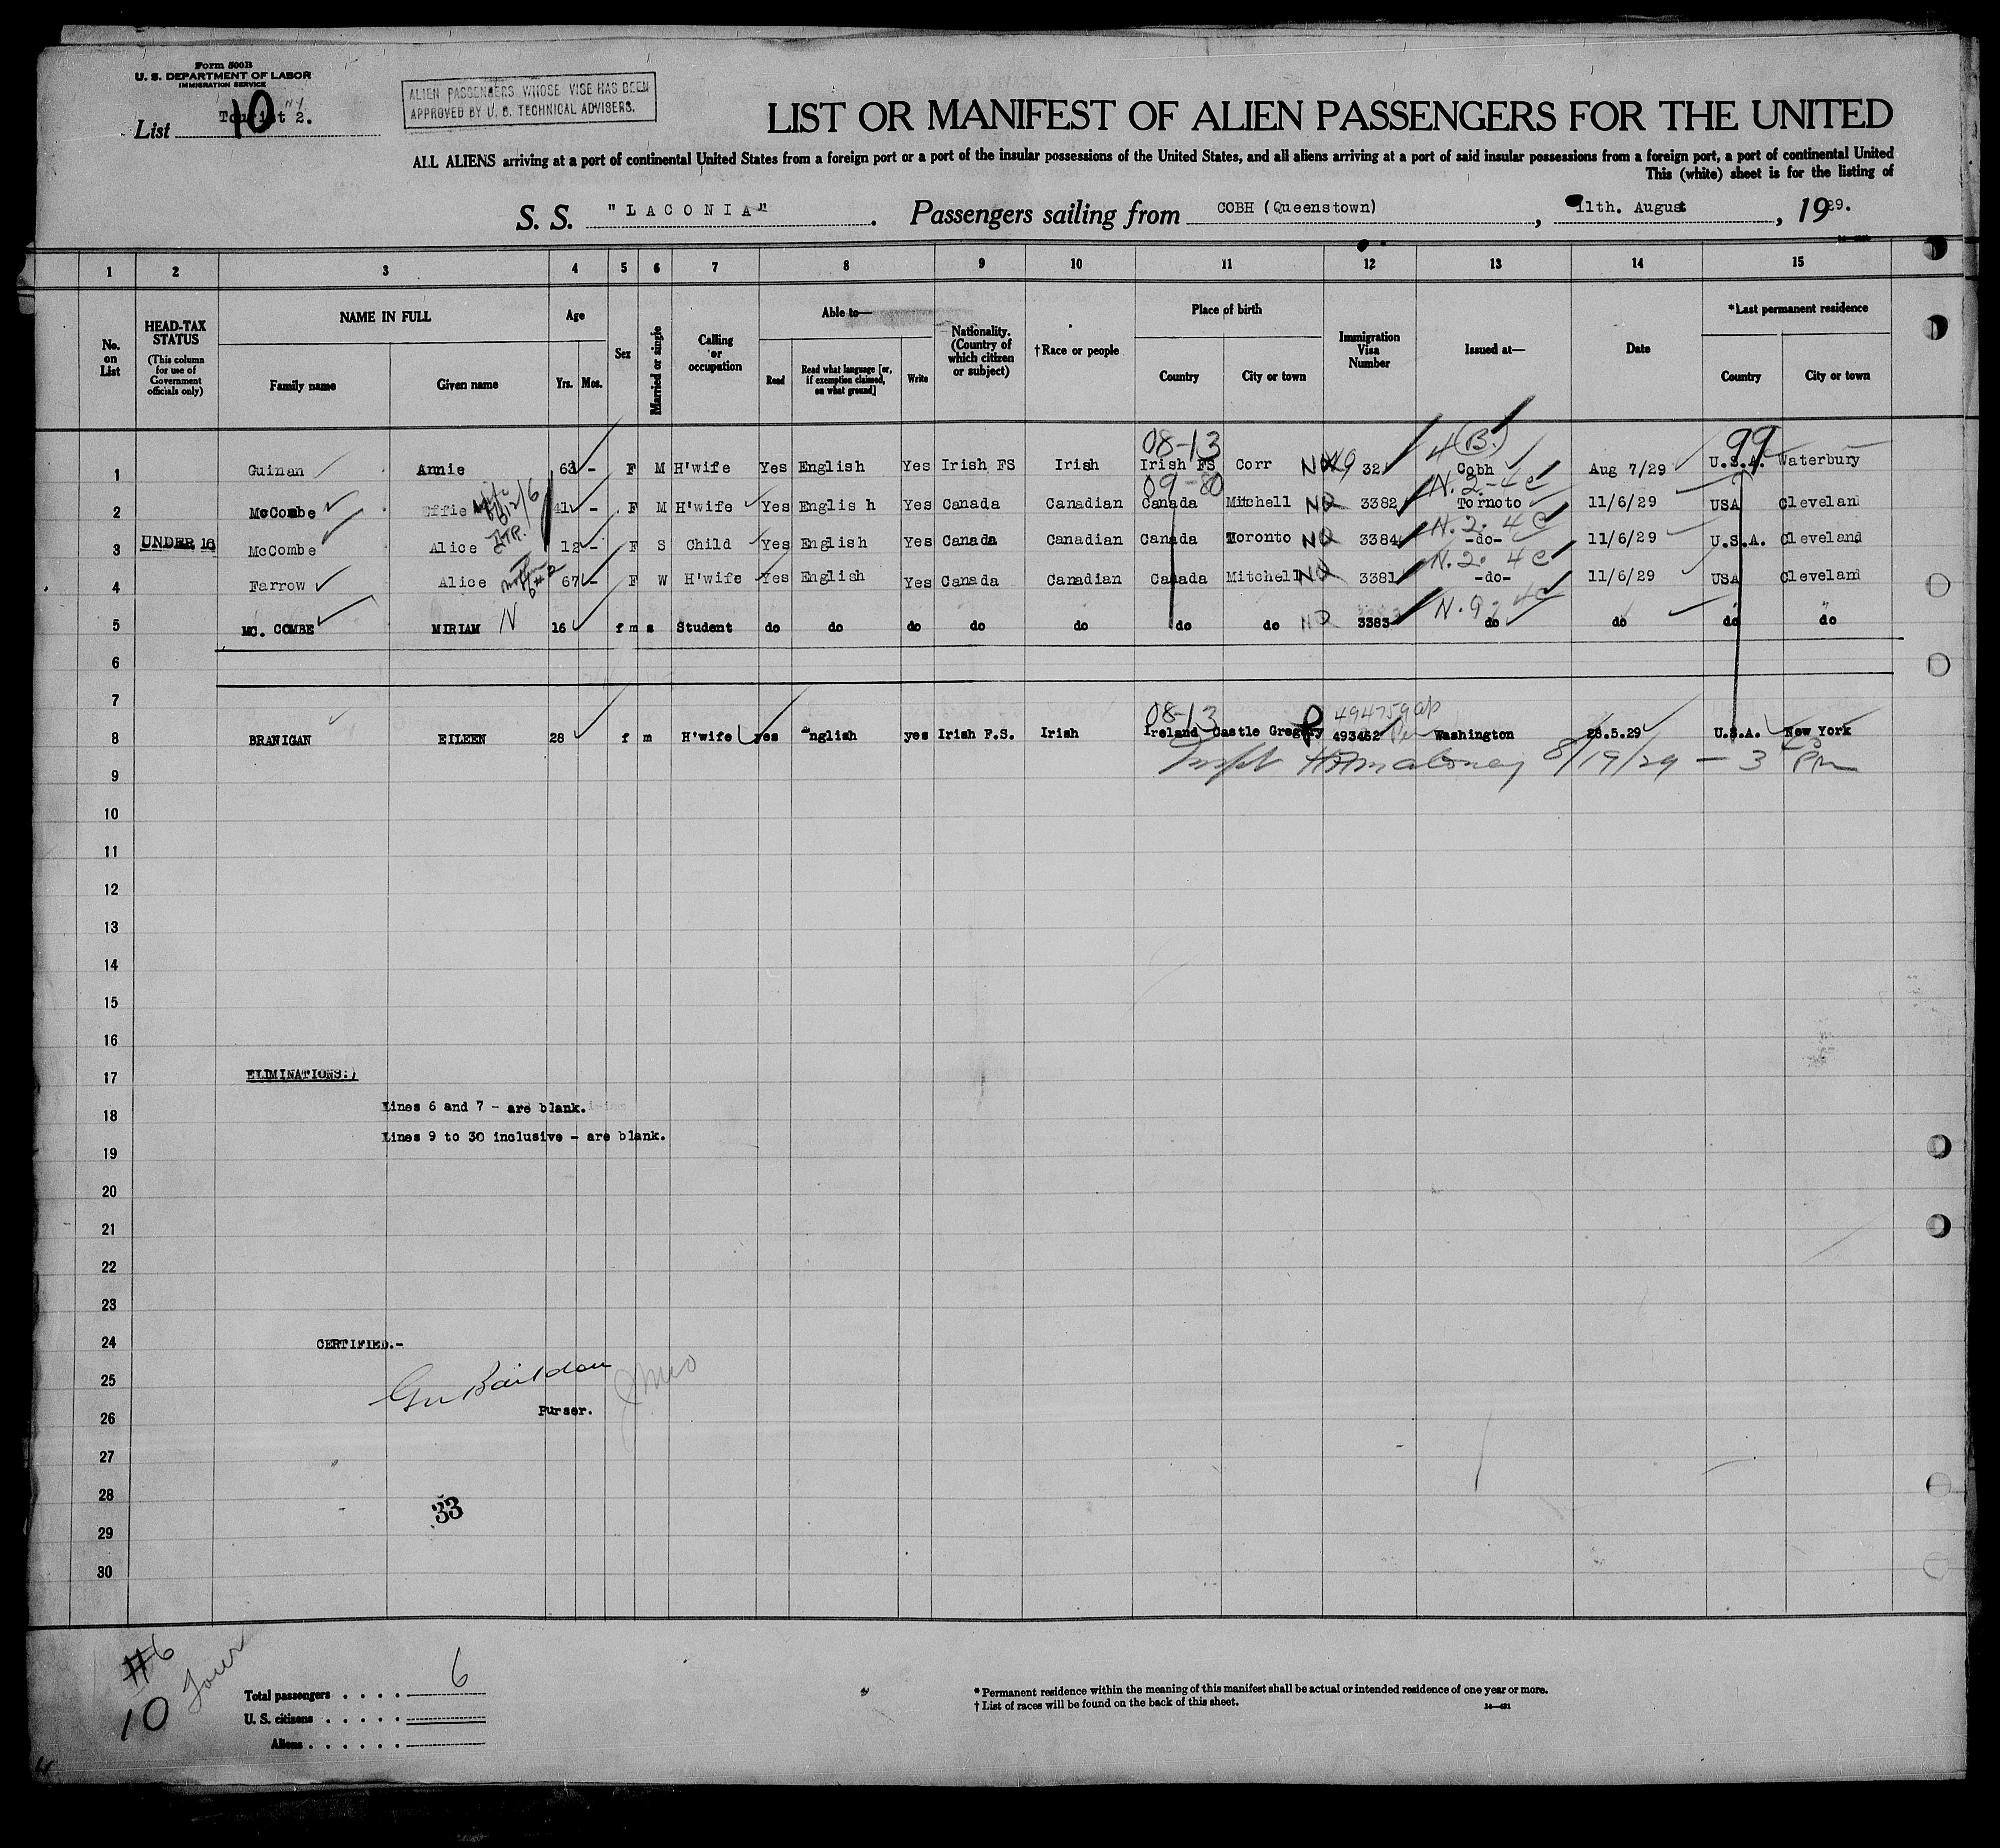 Form 500B
U. S. DEPARTMENT OF LABOR
IMMIGRATION SERVICE
List Tourist 2. 10
ALIEN PASSENGERS WHOSE VISE HAS BEEN
APPROVED BY U. S. TECHNICAL ADVISERS.
LIST OR MANIFEST OF ALIEN PASSENGERS FOR THE UNITED
ALL ALIENS arriving at a port of continental United States from a foreign port or a port of the insular possessions of the United States, and all aliens arriving at a port of said insular possessions from a foreign port, a port of continental United
This (white) sheet is for the listing of
S. S. "LACONIA". Passengers sailing from COBH (Queenstown), 11th. August, 1929.
1 2 3 4 5 6 7 8 9 10 11 12 13 14 15
No. on List
HEAD-TAX STATUS
(This column for use of Government officials only)
NAME IN FULL
Family name Given name
Age
Yrs. Mos.
Sex
Married or single
Calling or occupation
Able to—
Read Read what language [or, if exemption claimed, on what ground] Write
Nationality. (Country of which citizen or subject)
†Race or people
Place of birth
Country City or town
Immigration Visa Number
Issued at—
Date
*Last permanent residence
Country City or town
08-13 4(B.) 99
1 Guinan Annie 63 - F M H'wife Yes English Yes Irish FS Irish Irish FS Corr 32 Cobh Aug 7/29 U.S.A. Waterbury
09-80 N.2-4c
2 McCombe Effie 41 - F M H'wife Yes Englis h Yes Canada Canadian Canada Mitchell NQ 3382 Tornoto 11/6/29 USA Cleveland
N.2. 4c
3 UNDER 16 McCombe Alice 12 - F S Child Yes English Yes Canada Canadian Canada Toronto NQ 3384 -do- 11/6/29 U.S.A. Cleveland
N.2. 4c
4 Farrow Alice 67 - F W H'wife Yes English Yes Canada Canadian Canada Mitchell NQ 3381 -do- 11/6/29 USA Cleveland
5 MC. COMBE MIRIAM N 16 f m s Student do do do do do do do 3383 do do do do
6
7
08-13 494759
8 BRANIGAN EILEEN 28 f m H'wife yes English yes Irish F.S. Irish Ireland Castle Gregory 493462 Washington 28.5.29 U.S.A. New York
9 8/19/29 - 3 Pm
10
11
12
13
14
15
16
17 ELIMINATIONS:)
18 Lines 6 and 7 - are blank.
19 Lines 9 to 30 inclusive - are blank.
20
21
22
23
24 CERTIFIED.-
25
26 Purser.
27
28 33
29
30
#6
10
Total passengers . . . . 6
U. S. citizens . . . . .
Aliens . . . . . .
* Permanent residence within the meaning of this manifest shall be actual or intended residence of one year or more.
† List of races will be found on the back of this sheet.
14—421